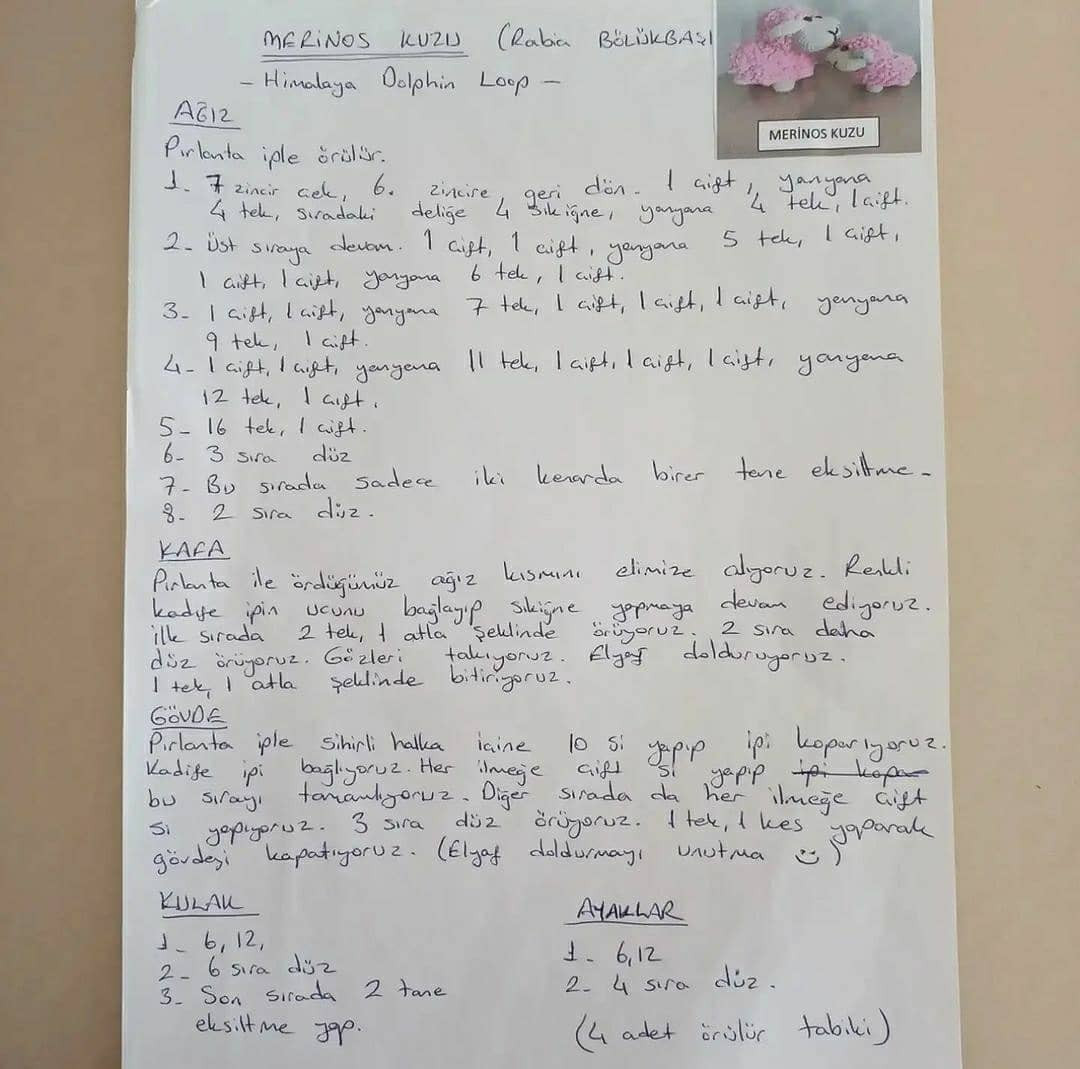 MERİNOS KUZU (Rabia BÖLÜKBAŞI
- Himalaya Dolphin Loop -
MERİNOS KUZU
AĞIZ
Pırlanta iple örülür.
1. 7 zincir çek, 6. zincire geri dön. 1 çift, yanyana
4 tek, sıradaki deliğe 4 sıkiğne, yanyana 4 tek, 1 çift.
2- Üst sıraya devam. 1 çift, 1 çift, yanyana 5 tek, 1 çift,
1 çift, 1 çift, yanyana 6 tek, 1 çift.
3- 1 çift, 1 çift, yanyana 7 tek, 1 çift, 1 çift, 1 çift, yanyana
9 tek, 1 çift.
4- 1 çift, 1 çift, yanyana 11 tek, 1 çift, 1 çift, 1 çift, yanyana
12 tek, 1 çift.
5- 16 tek, 1 çift.
6- 3 sıra düz
7- Bu sırada sadece iki kenarda birer tane eksiltme-
8- 2 sıra düz.
KAFA
Pırlanta ile ördüğümüz ağız kısmını elimize alıyoruz. Renkli
kadife ipin ucunu bağlayıp sıkiğne yapmaya devam ediyoruz.
ilk sırada 2 tek, 1 atla şeklinde örüyoruz. 2 sıra daha
düz örüyoruz. Gözleri takıyoruz. Elyaf dolduruyoruz.
1 tek, 1 atla şeklinde bitiriyoruz.
GÖVDE
Pırlanta iple sihirli halka içine 10 si yapıp ipi koparıyoruz.
Kadife ipi bağlıyoruz. Her ilmeğe çift si yapıp ipi kopa
bu sırayı tamamlıyoruz. Diğer sırada da her ilmeğe çift
si yapıyoruz. 3 sıra düz örüyoruz. 1 tek, 1 kes yaparak
gövdeyi kapatıyoruz. (Elyaf doldurmayı unutma ☺)
KULAK
1- 6, 12,
2- 6 sıra düz
3- Son sırada 2 tane
eksiltme yap.
AYAKLAR
1- 6,12
2- 4 sıra düz.
(4 adet örülür tabiki)